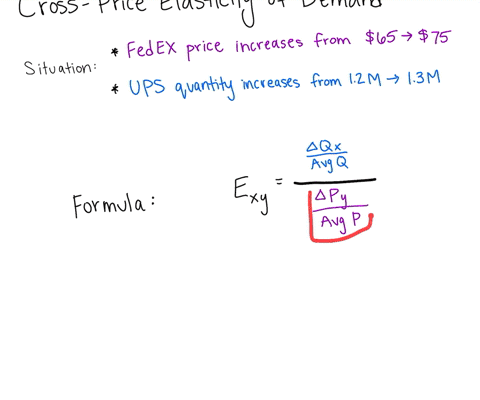 Cross-Price Elasticity of Demand
Situation:
* FedEX price increases from $65 → $75
* UPS quantity increases from 1.2M → 1.3M
Formula:
Exy =
ΔQx
Avg Q
ΔPy
Avg P